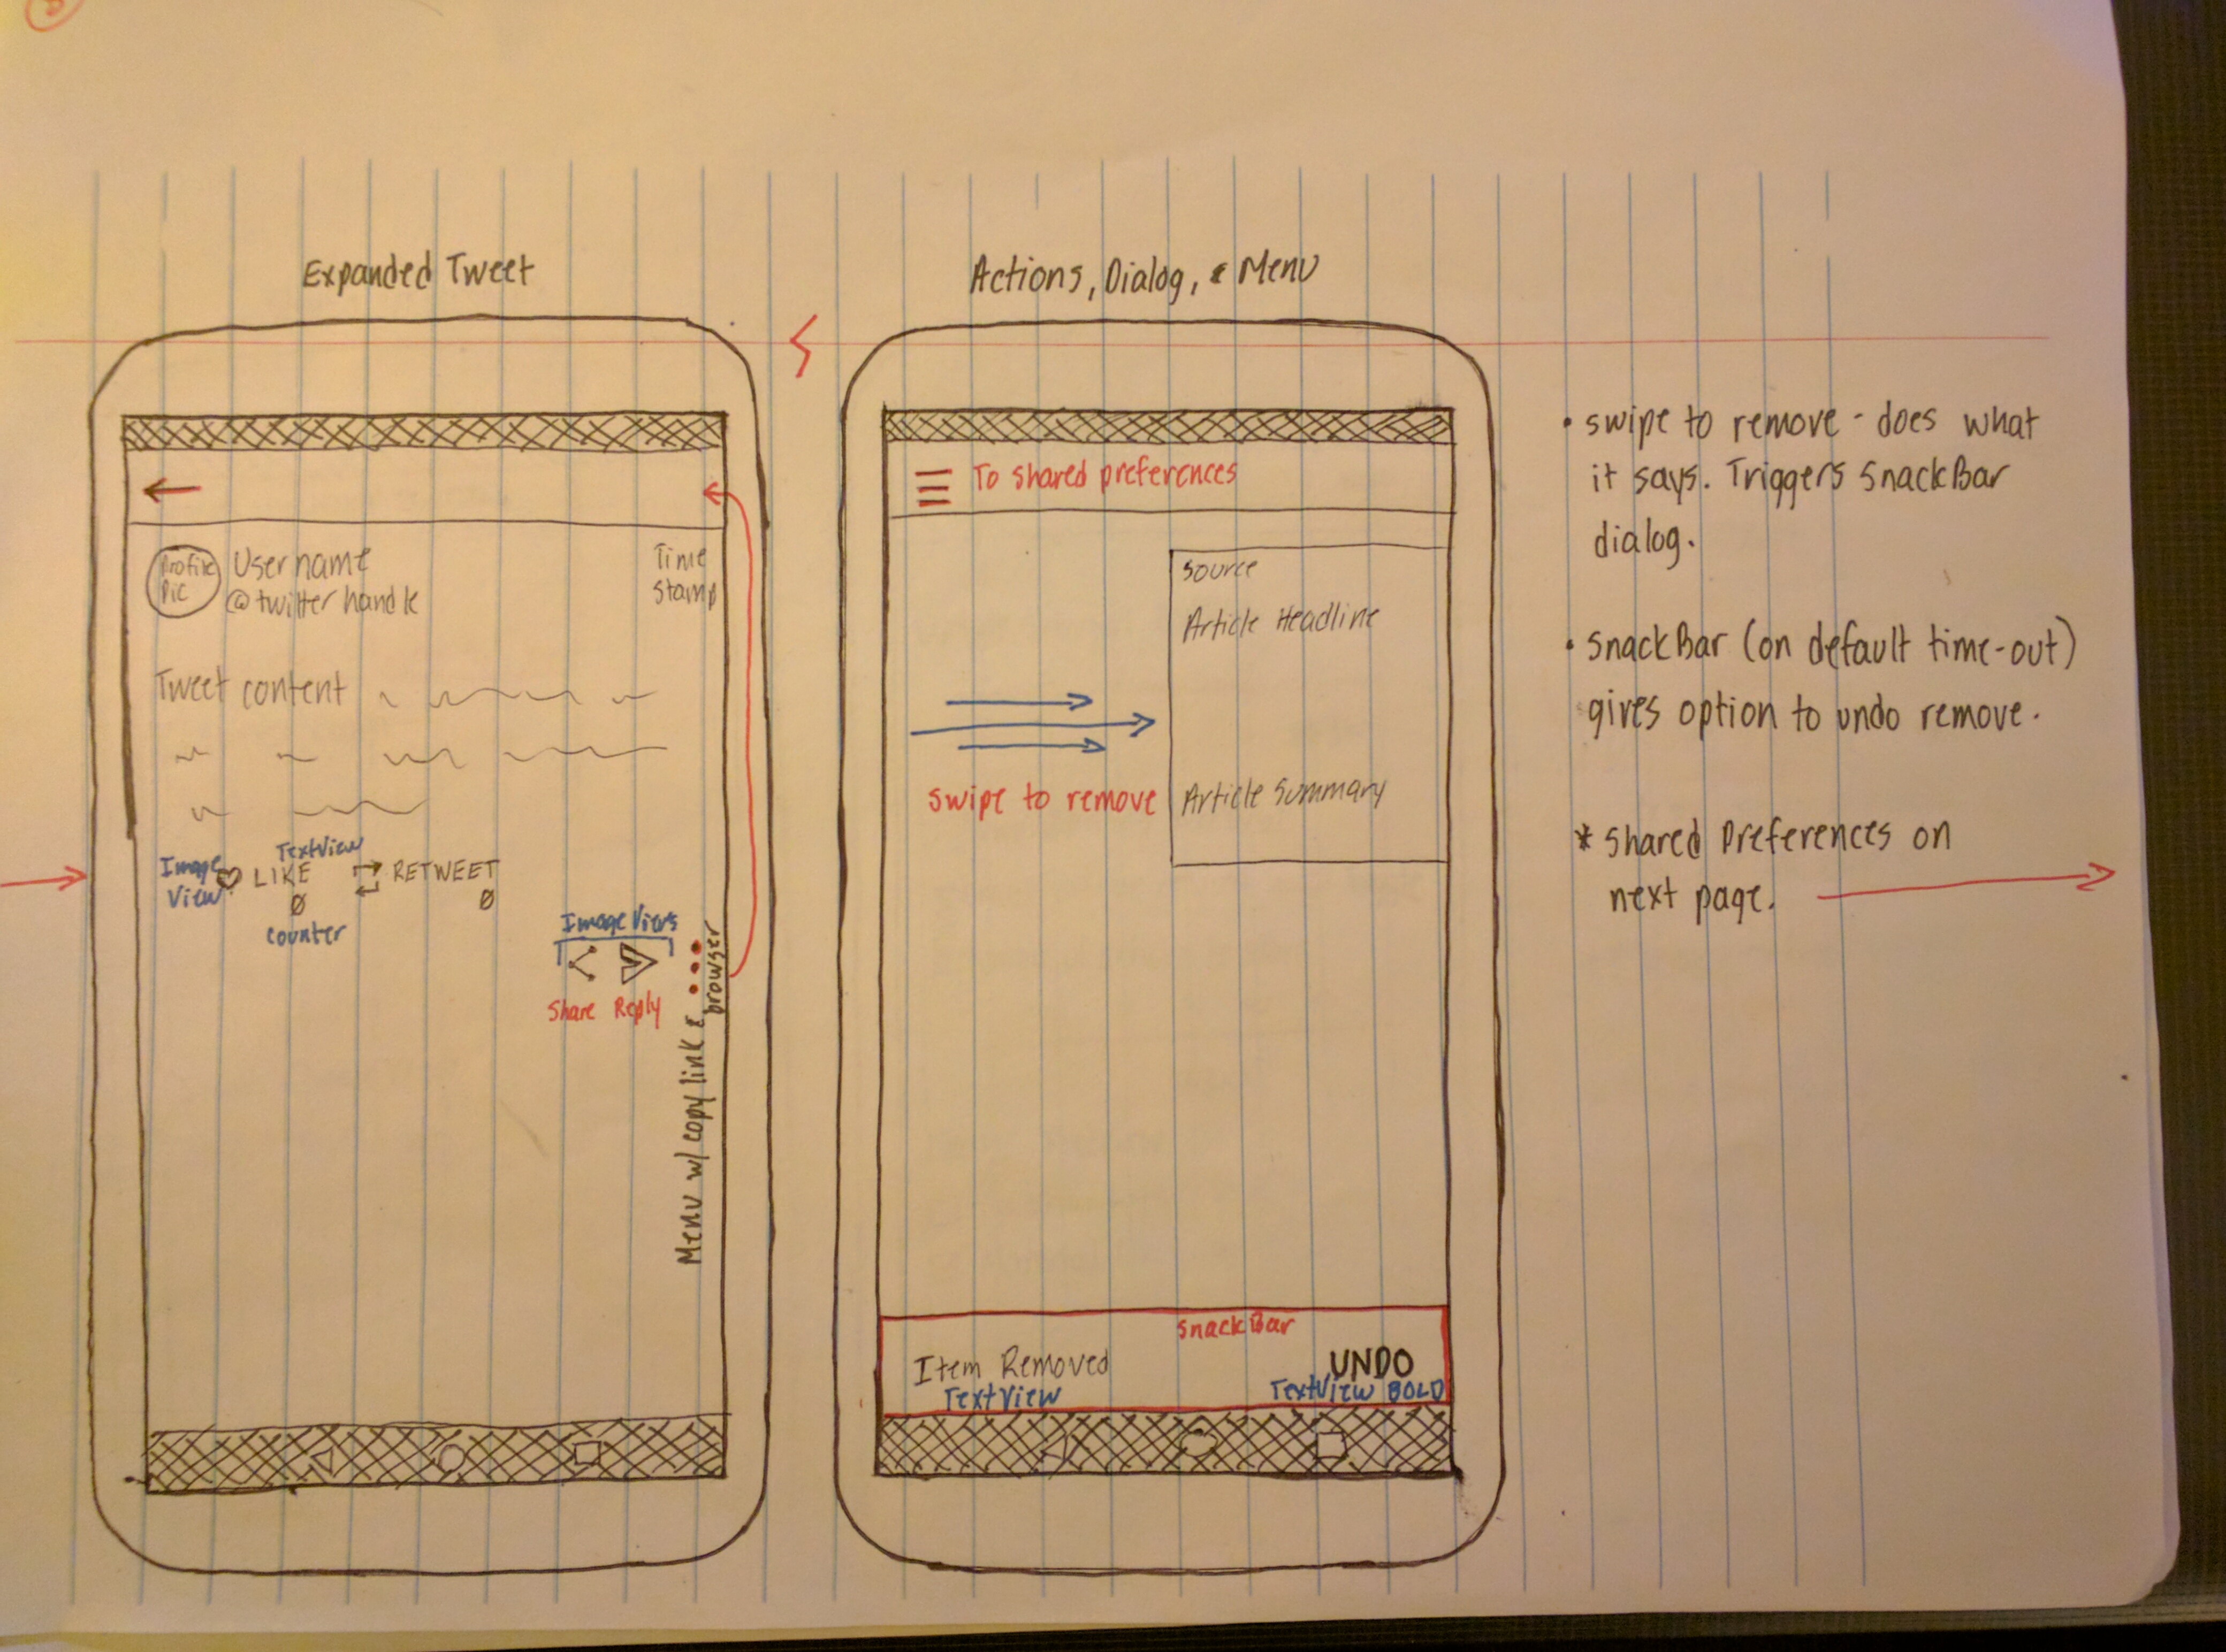 Expanded Tweet
Profile
Pic
User name
@twitter handle
Time
Stamp
Tweet content
Image
View
TextView
LIKE
0
counter
RETWEET
0
Image Views
Share Reply
Menu w/ copy link &
browser
Actions, Dialog, & Menu
To shared preferences
Source
Article Headline
swipe to remove
Article Summary
SnackBar
Item Removed
TextView
UNDO
TextView BOLD
• swipe to remove - does what
it says. Triggers SnackBar
dialog.
• SnackBar (on default time-out)
gives option to undo remove.
* Shared Preferences on
next page.